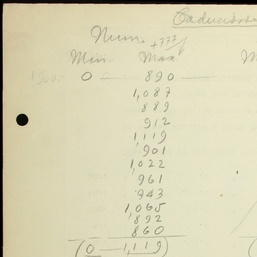 Num.
Min. Max.
0 — 890
1,087
889
912
1119
901
1,022
961
943
1,065
892
860
(0 — 1,119)